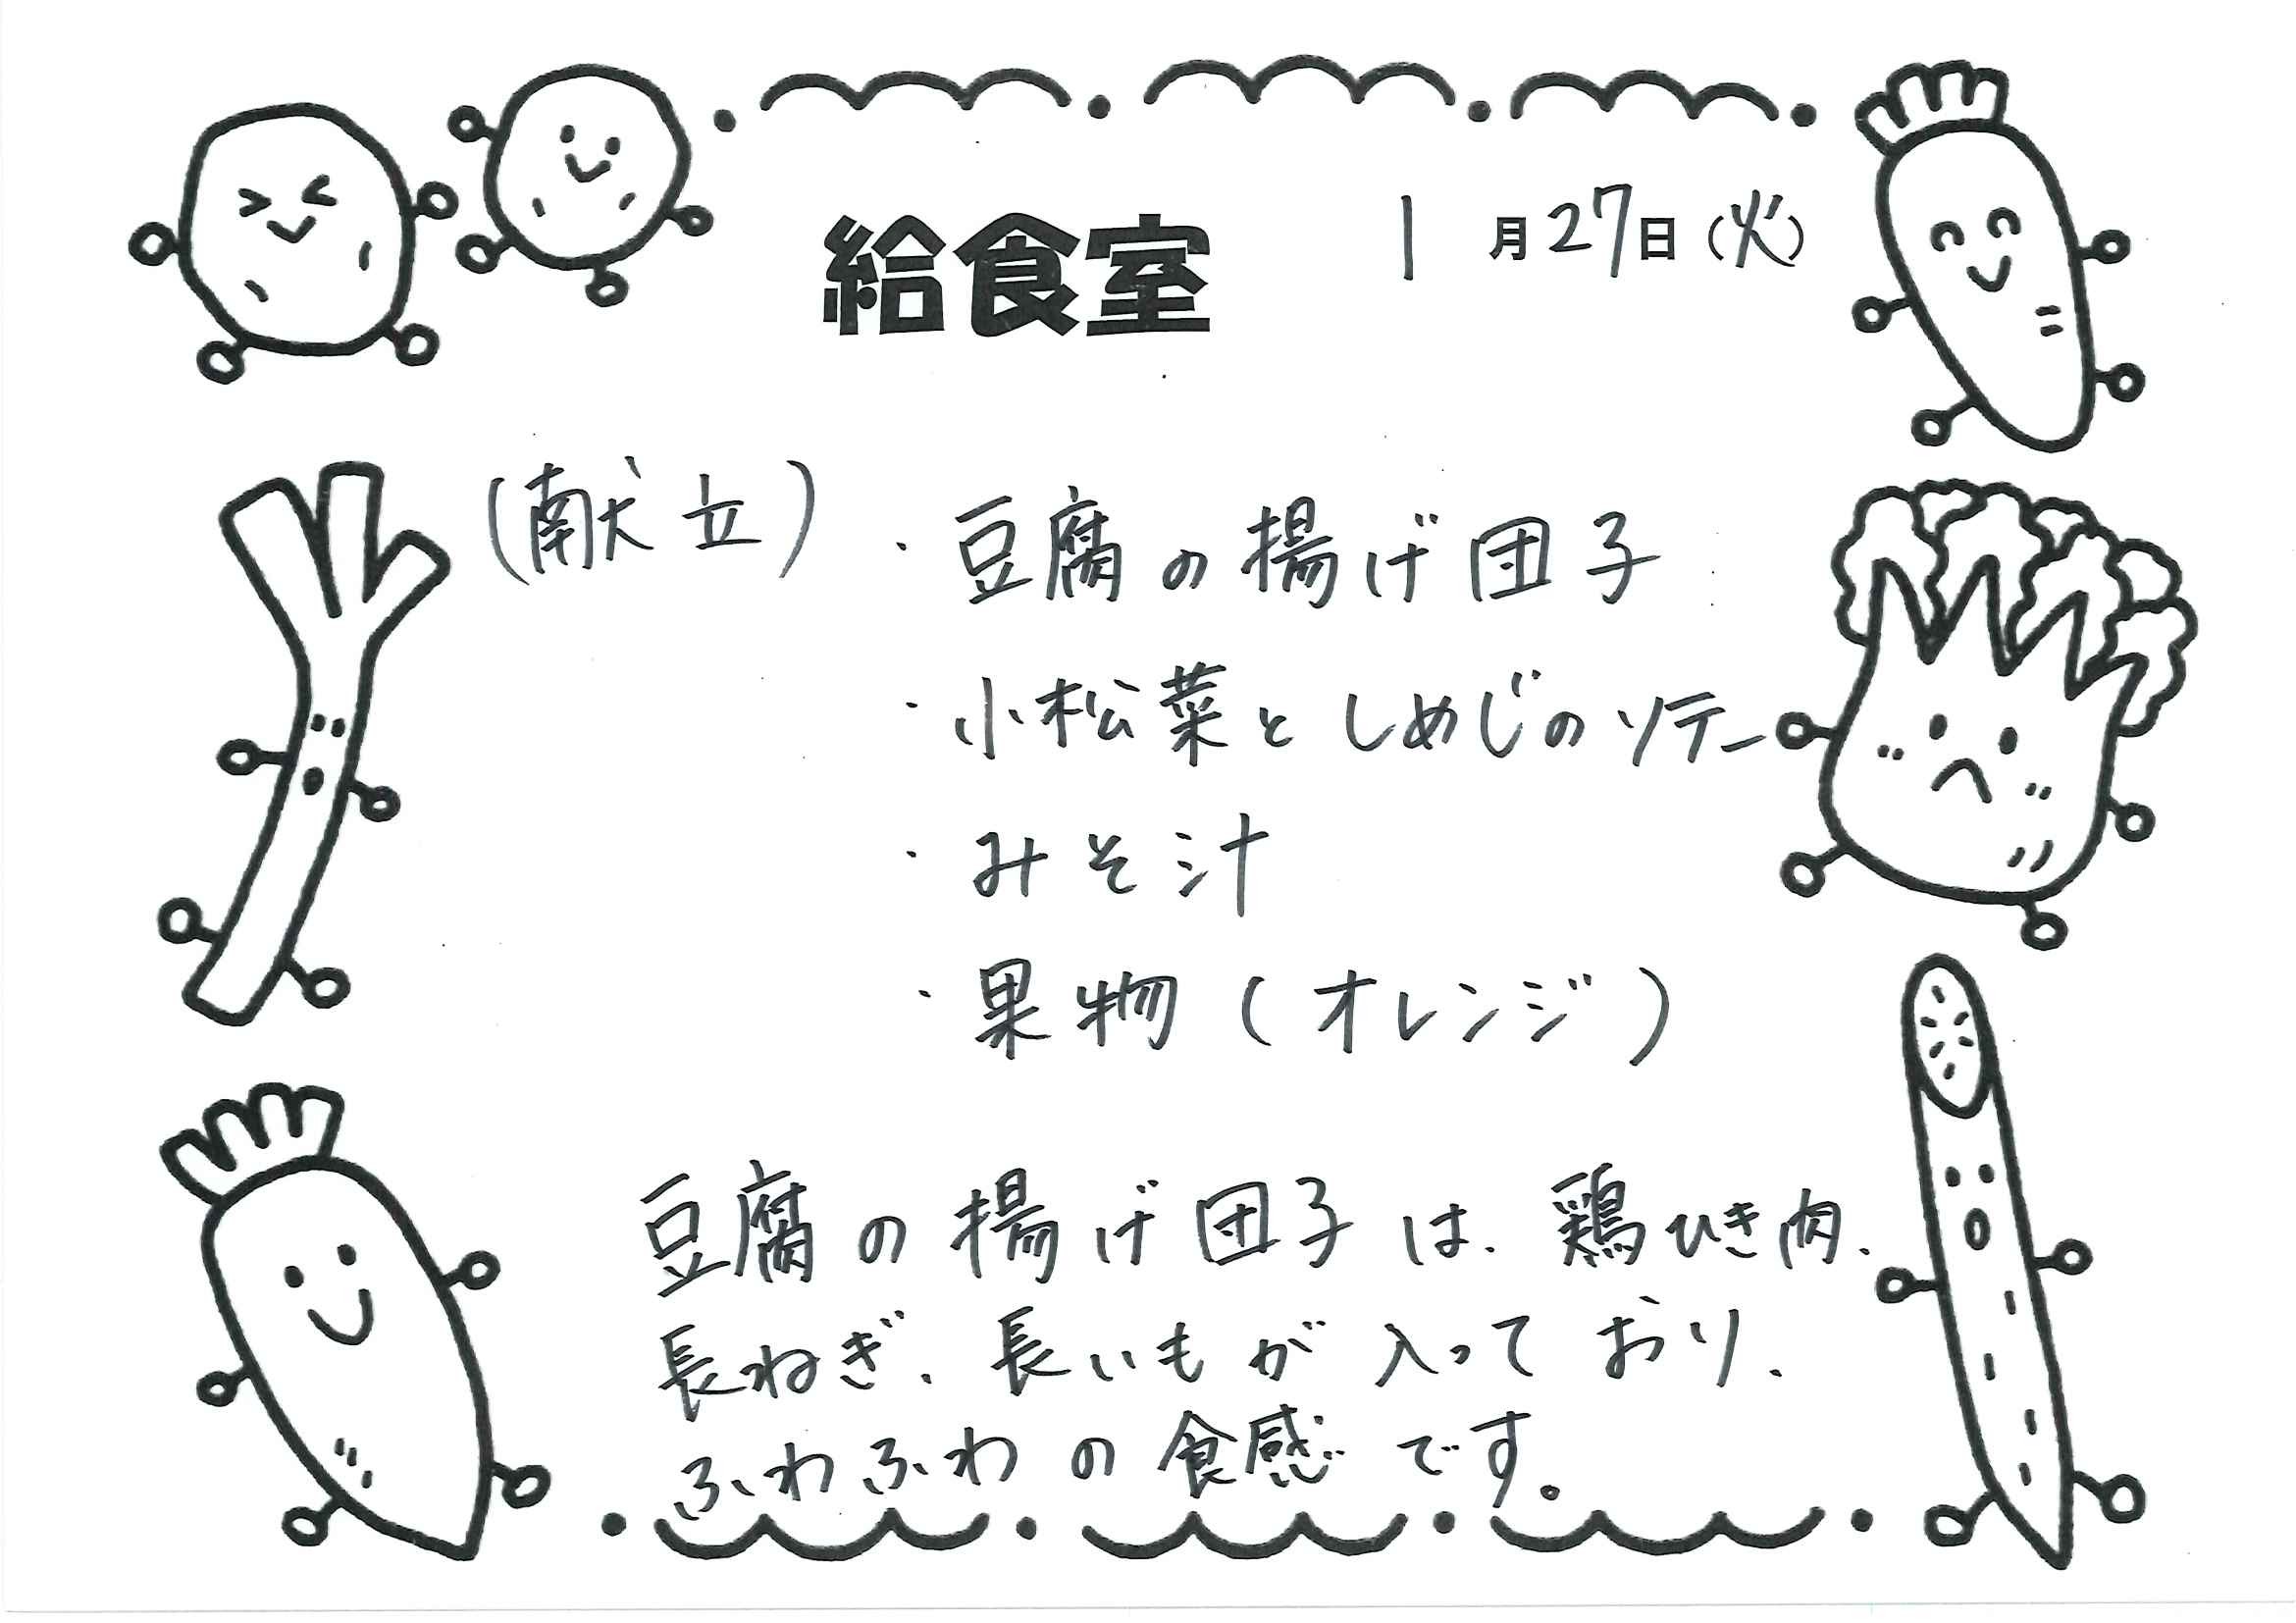 給食室
1月27日(火)
(献立)・豆腐の揚げ団子
・小松菜としめじのソテー
・みそ汁
・果物(オレンジ)
豆腐の揚げ団子は、鶏ひき肉、
長ねぎ、長いもが入っており、
ふわふわの食感です。